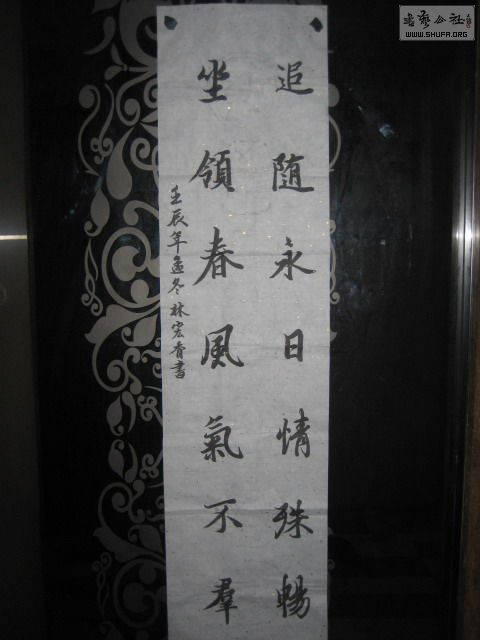 追随永日情殊暢
坐領春風氣不羣
壬辰年孟冬林宏青書
书艺公社
WWW.SHUFA.ORG